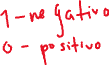 1 - negativo
0 - positivo